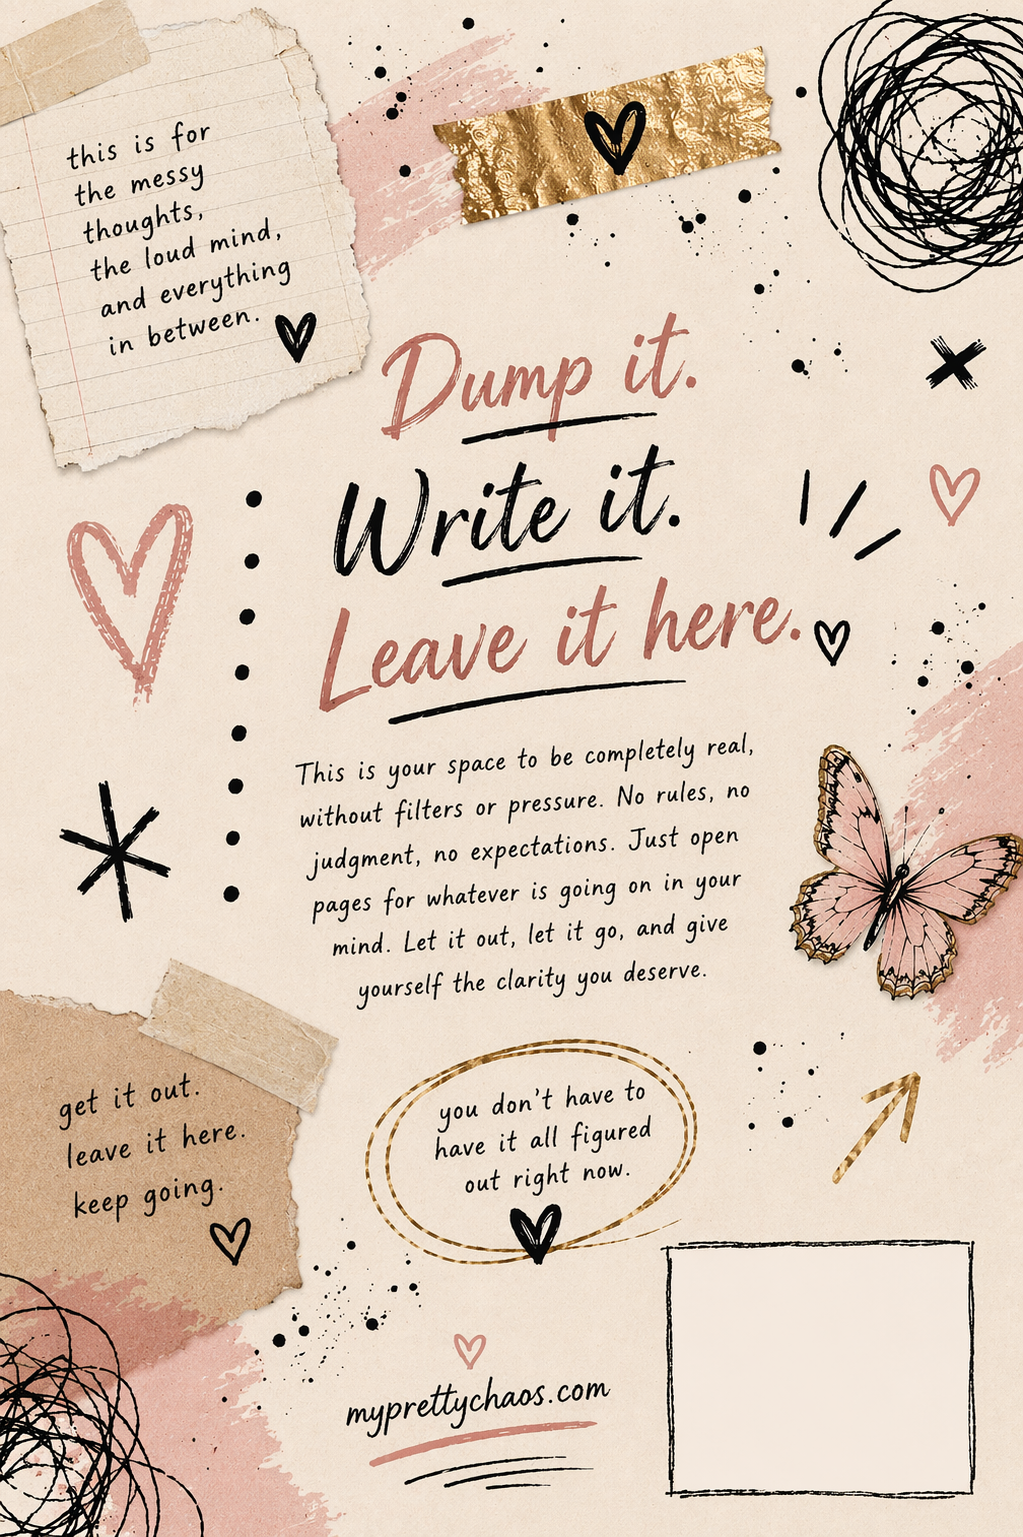 this is for
the messy
thoughts,
the loud mind,
and everything
in between.
Dump it.
Write it.
Leave it here.
This is your space to be completely real,
without filters or pressure. No rules, no
judgment, no expectations. Just open
pages for whatever is going on in your
mind. Let it out, let it go, and give
yourself the clarity you deserve.
get it out.
leave it here.
keep going.
you don't have to
have it all figured
out right now.
myprettychaos.com